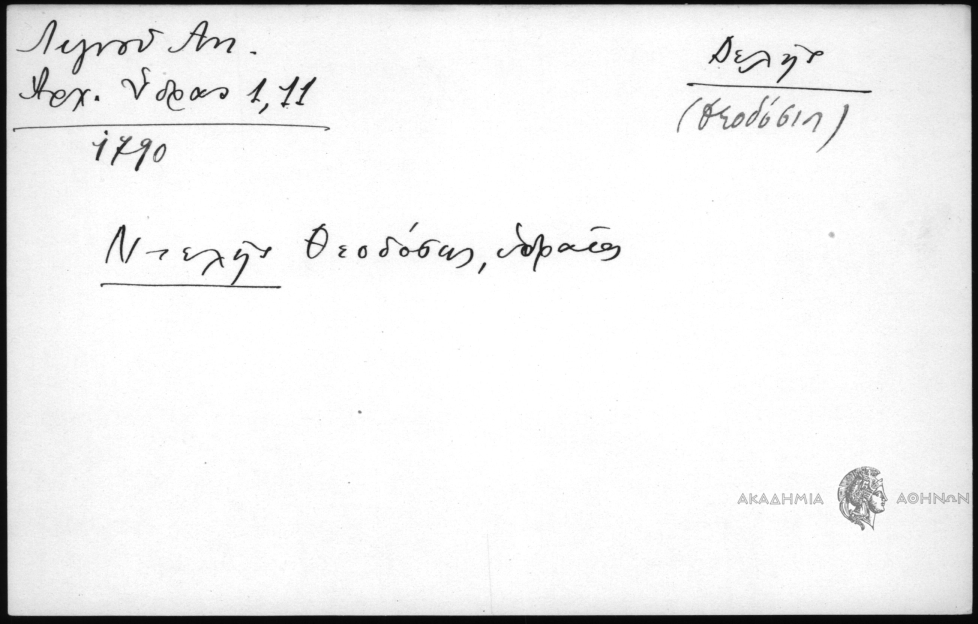 Λιγνού Αντ.
Αρχ. Ύδρας 1, 11
1790
Δελής
(Θεοδόσης)
Ντελής Θεοδόσης, υδραίος
ΑΚΑΔΗΜΙΑ ΑΘΗΝΩΝ